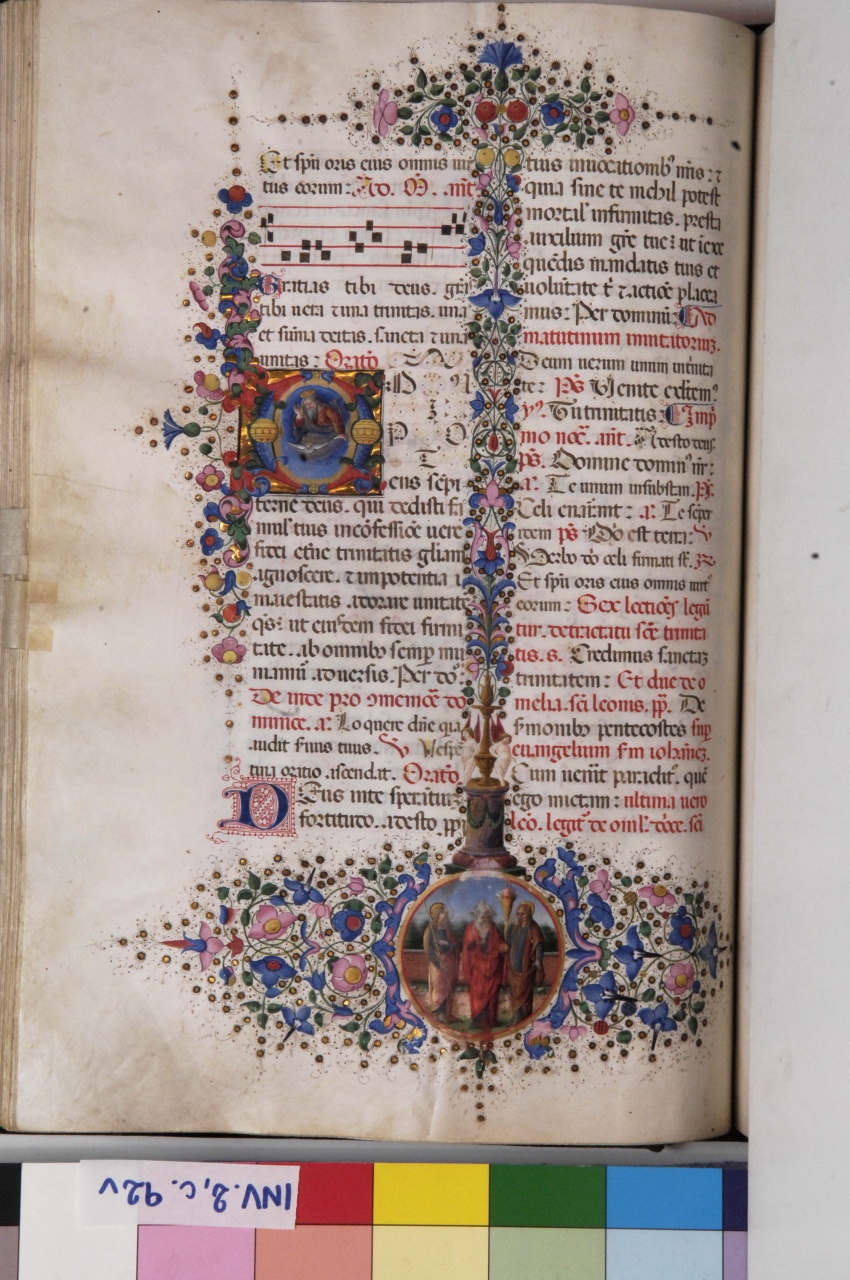 Et spū oris eius omnis uir
tus eorum: Ad. M. ant̄
Gratias tibi deus. grā
tibi uera una trinitas. una
et sūma deitas. sancta una
unitas: Oratō
O M N
P O
T
ens sēpi
terne deus. qui dedisti fa
mul' tuis incōfessiōe uere
fidei etne trinitatis gliam
agnoscere. impotentia
maiestatis adorare unitatē
qs: ut eiusdem fidei firmi
tate. ab omnibꝰ semp mu
niamur aduersis. Per do:
De inde pro ꝯmemoē do
minice. a: Loquere dn̄e quia
audit seruus tuus. V Vespe
tina oratio ascendat. Oratō
Deus inte sperātiuʒ
fortitudo. adesto ppi
tius inuocationibꝰ nr̄is: 
quia sine te nichil potest
mortal' infirmitas. presta
auxilium grē tue: ut iexe
quēdis mandatis tuis et
uolūtate t' actiōe placea
mus: Per dominū: Ad
matutinum inuitatoriuʒ.
Deum uerum unum intrinita
te: Ps Venite exultem'
y' Tu trinitatis: Imp
mo noc. ant. Adesto deus
ps. Domine domin' nr:
a: Te unum insubstan. Ps.
Celi enarrant: a: Te semper
idem ps Dn̄o est terra: V
Verbo do celi firmati st.
Et spū oris eius omnis uirt'
eorum: Sex lectiōes legū
tur. detractatu scē trinita
tis. s. Credimus sanctaʒ
trinitatem: Et due de o
melia. sci leonis. pp. De
smonibꝰ pentecostes sup
euangelium sm iohāneʒ.
Cum uenerit paraclit'. quē
ego mictam: ultima uero
lcō. legit' de oml'. sci
INV. 2, c. 92v